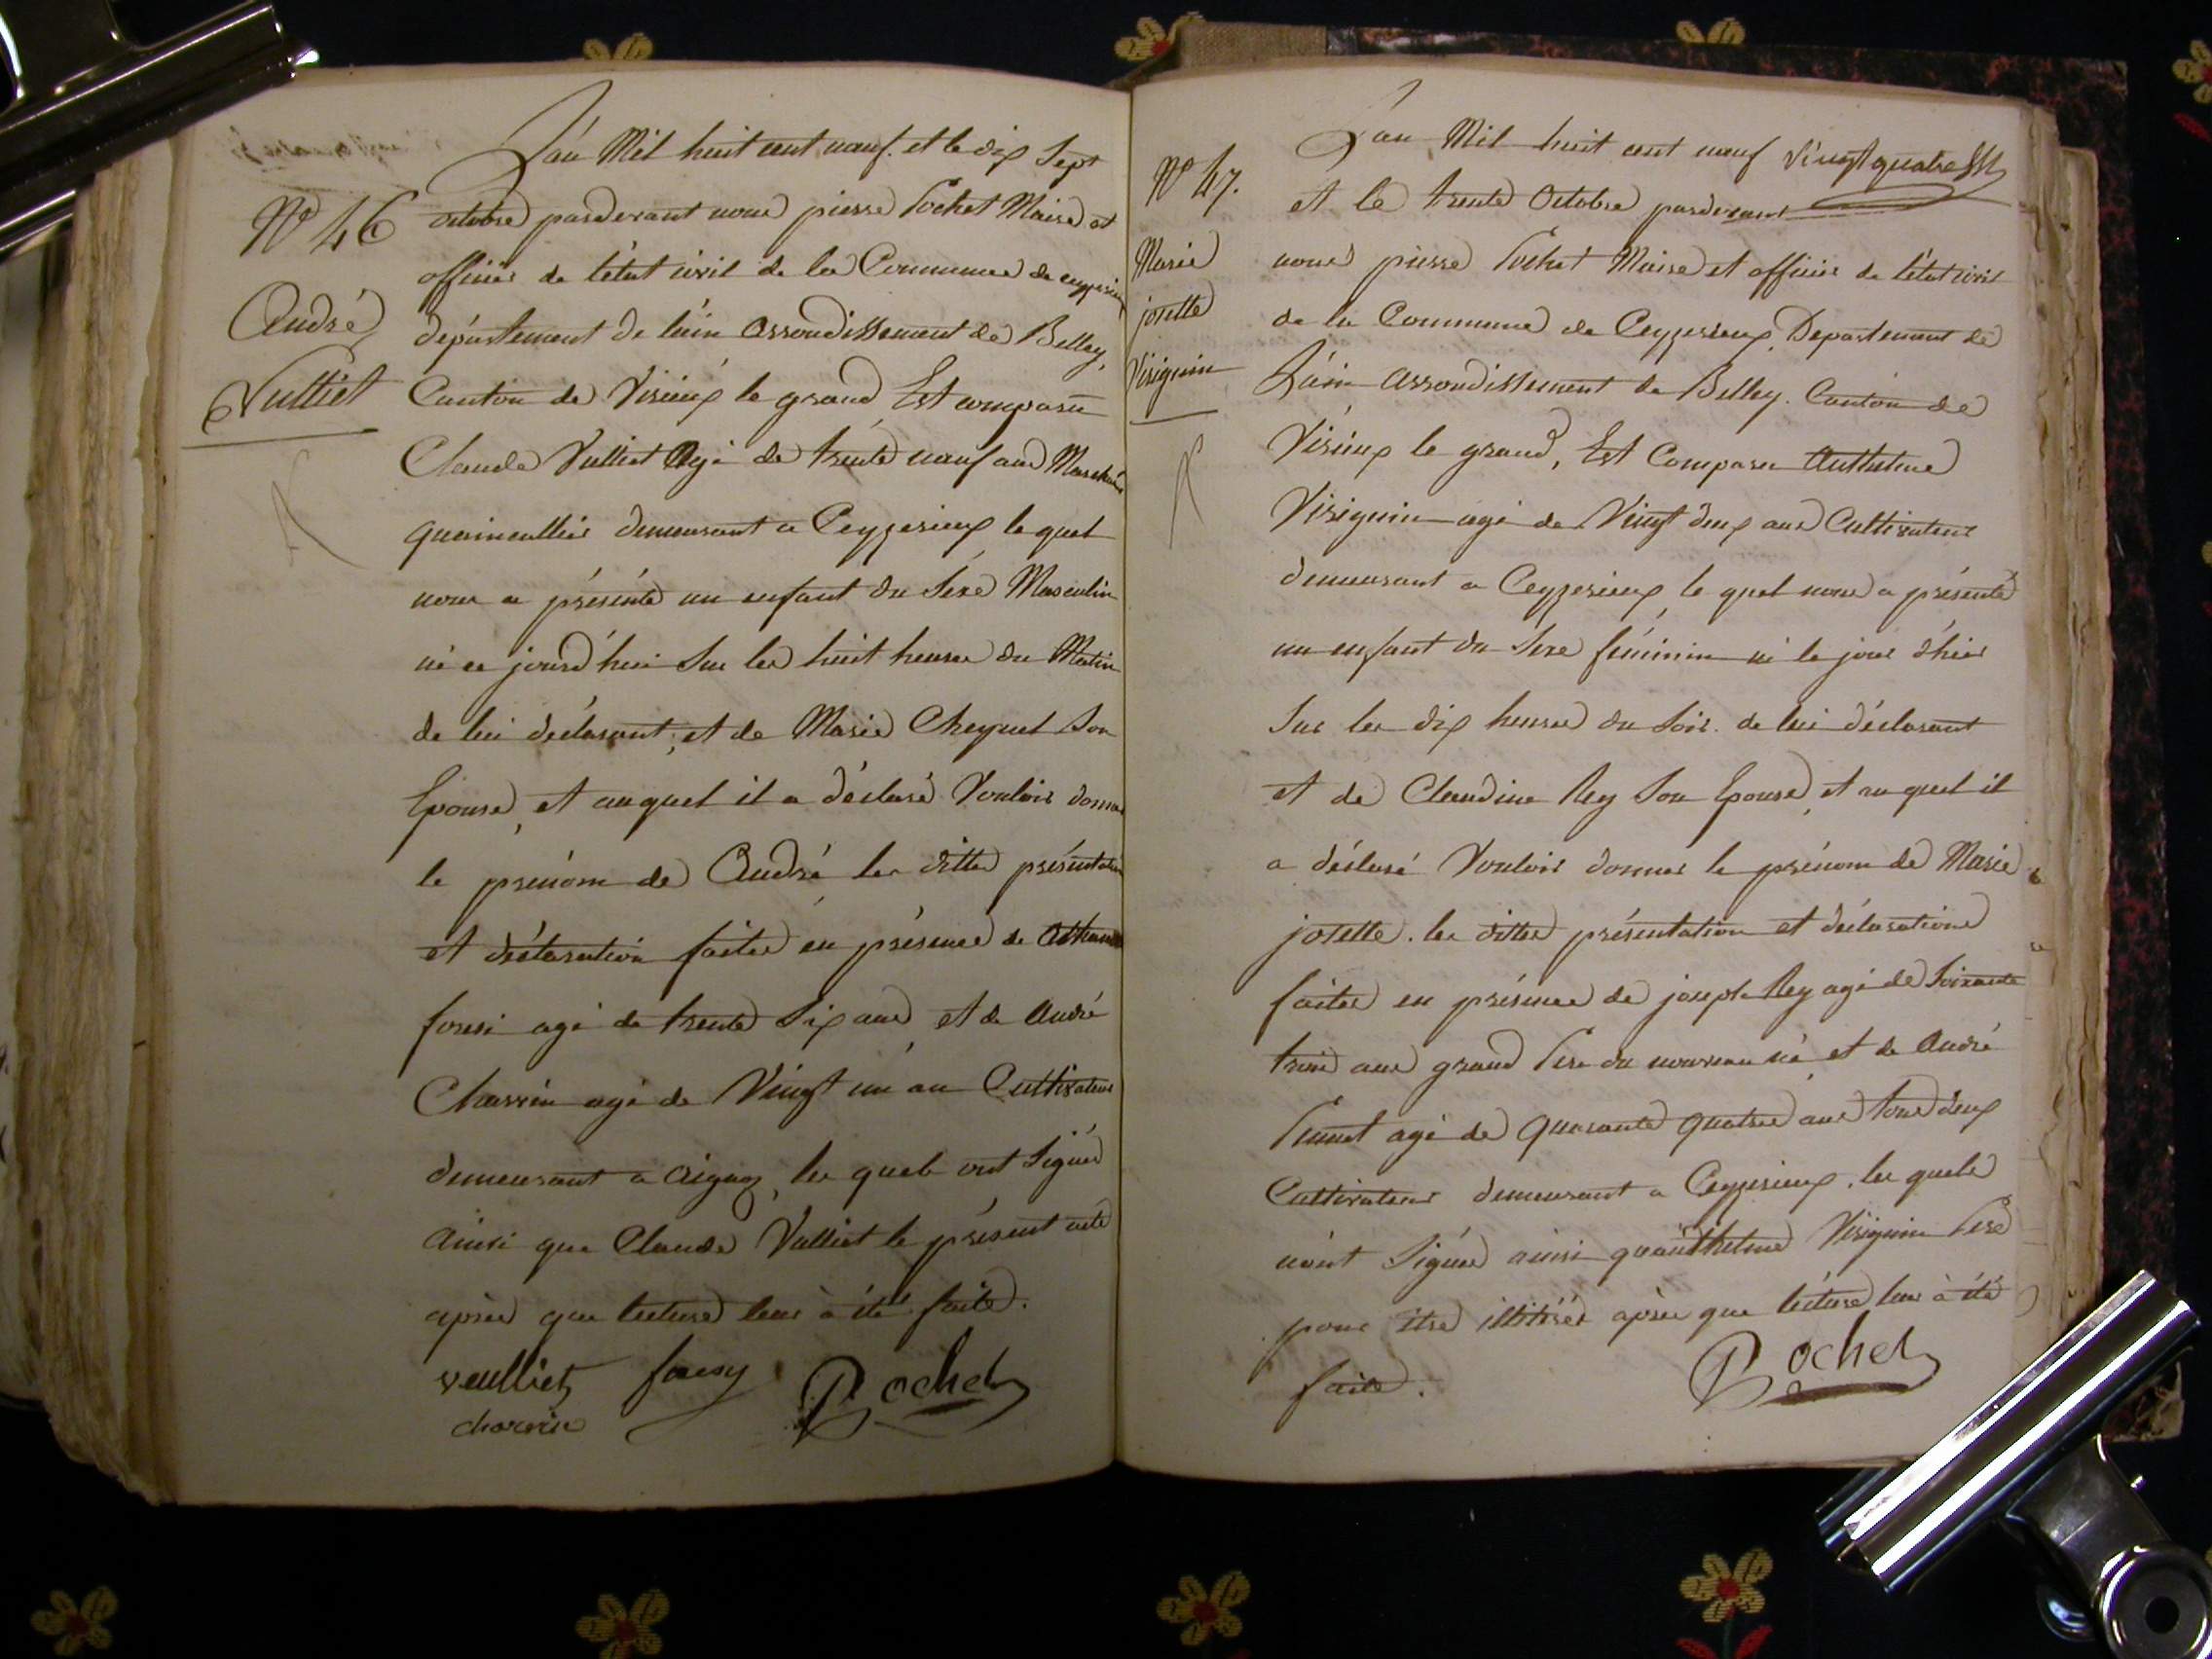 L'an Mil huit cent neuf. et le dix Sept
N° 46
octobre pardevant nous pierre Pochet Maire et
officier de l'état civil de la Commune de ceyzerieux
André
département de l'ain arrondissement de Belley,
Vulliet
Canton de Virieux le grand Est comparu
Claude Vulliet Agé de trente neuf ans Marchand
quaincallier demeurant a Ceyzerieux le quel
nous a présénté un enfant du Séxe Masculin
né ce jourd'hui Sur les huit heures du Matin
de lui déclarant, et de Marie Cheynel Son
Epouse, et auquel il a déclaré Vouloir donner
le prénom de André les dittes présentation
et déclaration faites én présence de
foresi agé de trente Six ans et de André
Charvin agé de Vingt un an Cultivateurs
demeurant a aignoz, les quels ont Signés
ainsi que Claude Vulliet le présent acte
après que lecture leur à été faite.
veulliet foresy P Pochet
charvin
L'an Mil huit cent neuf Vingt quatre
N° 47.
et le trente Octobre pardevant
Marie
nous pierre Pochet Maire et officier de l'état civil
josette
de la Commune de Ceyzerieux, Departement de
Viriguin
L'ain arrondissement de Belley. Canton de
Virieux le grand, Est Comparu Anthelme
Viriguin agé de Vingt deux ans Cultivateur
demeurant a Ceyzerieux, le quel nous a présénté
un enfant du Sexe féminin né le jour d'hier
Sur les dix heures du Soir. de lui déclarant
et de Claudine Rey Son Epouse, et au quel il
a déclaré Vouloir donner le prénom de Marie
josette. les dittes présentation et déclarations
faites en présence de joseph Rey agé de Soixante
trois ans grand Pere du nouveau né et de André
agé de quarante quatre ans tous deux
Cultivateurs demeurant a Ceyzerieux. les quels
n'ont Signés ainsi qu'anthelme Viriguin Pere
pour être illitirés après que lécture leur à été
faite. P Pochet